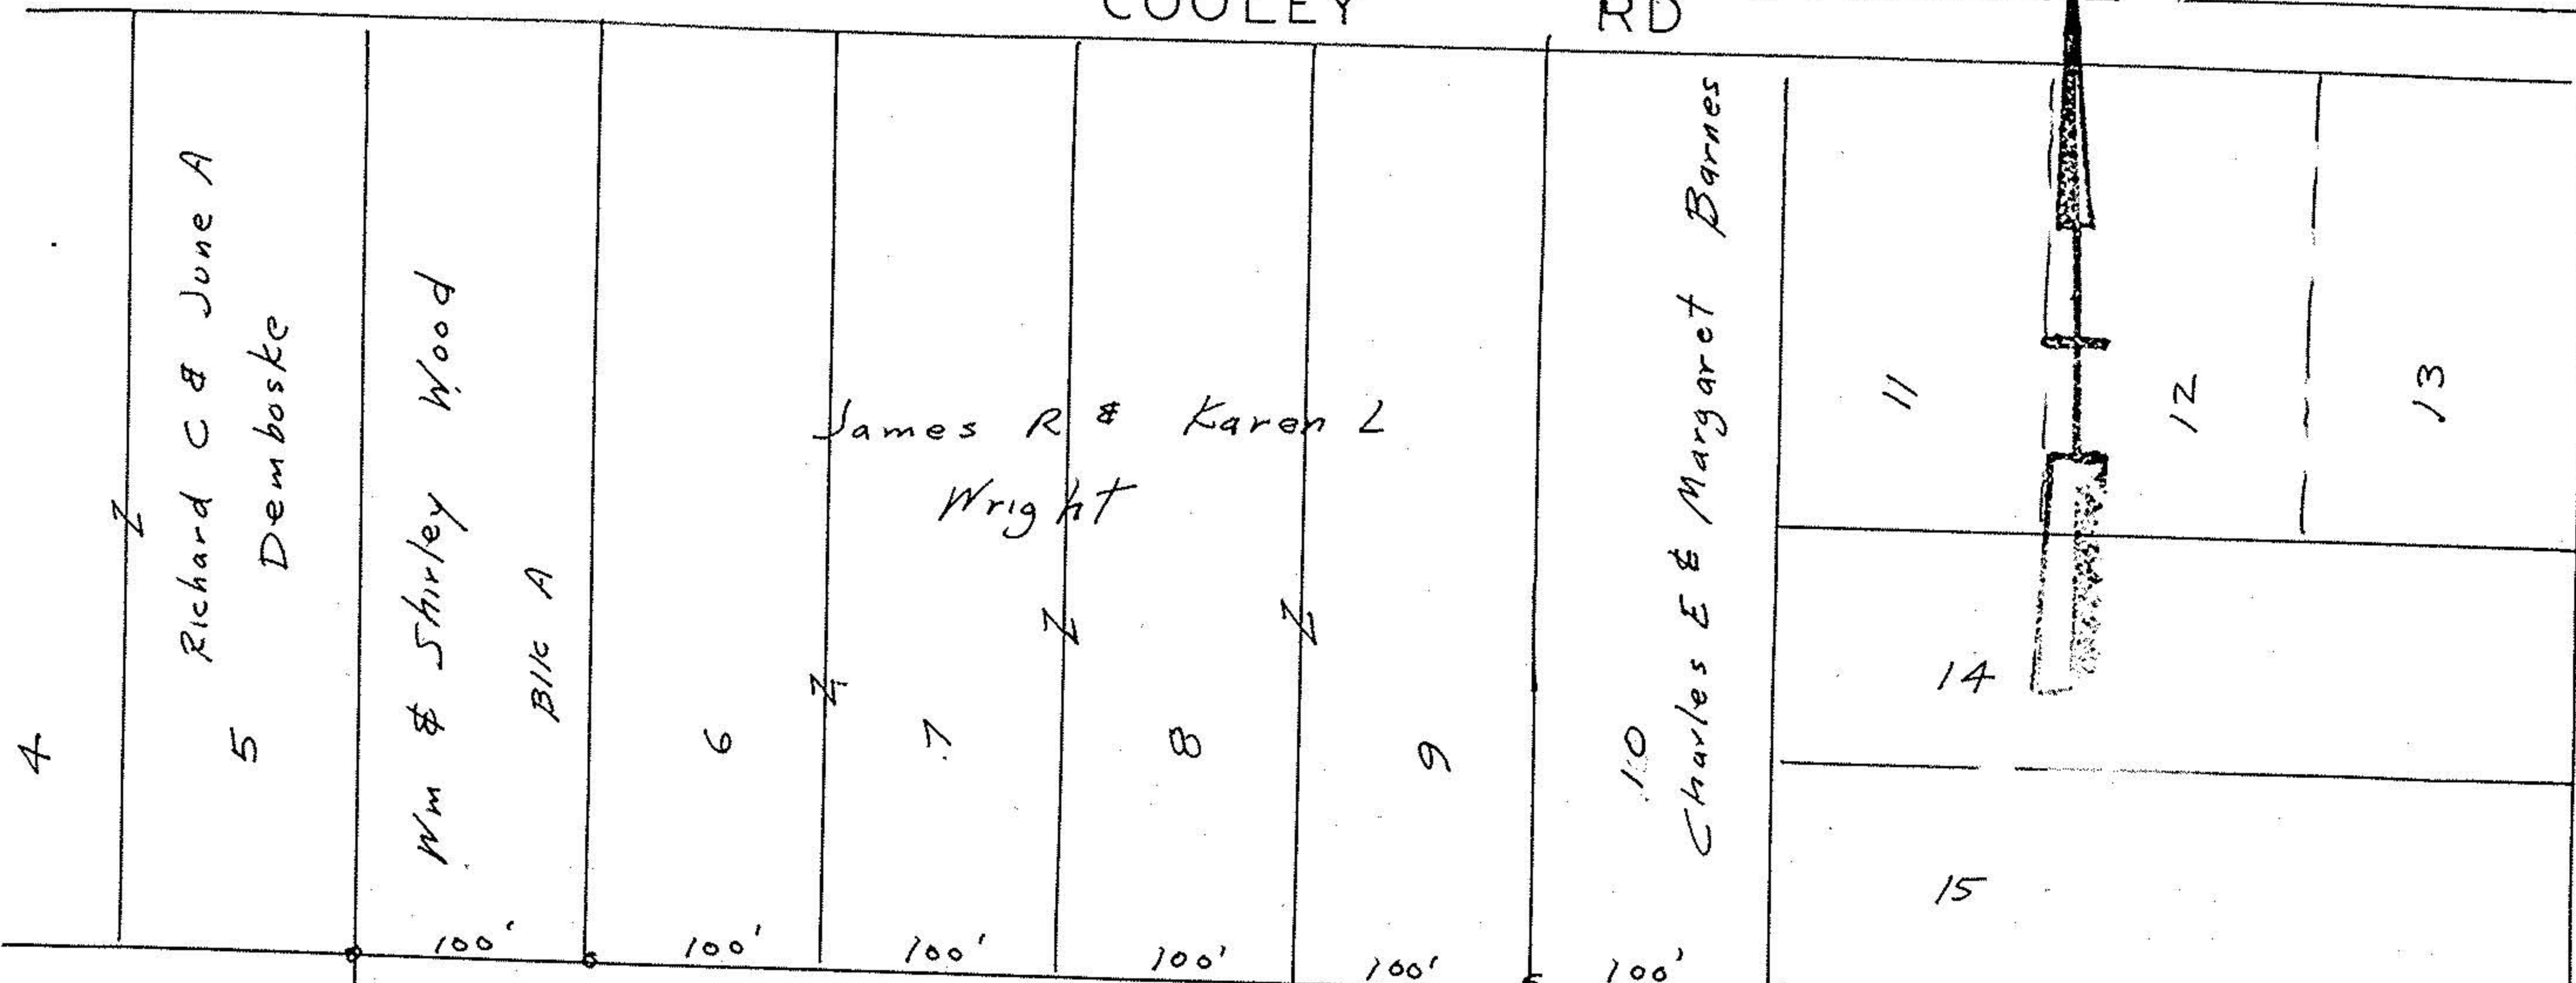 COOLEY RD
Richard C & June A
Demboske
Wm & Shirley Wood
Blk A
James R & Karen L
Wright
Charles E & Margaret Barnes
4
5
6
7
8
9
10
11
12
13
14
15
100'
100'
100'
100'
100'
100'